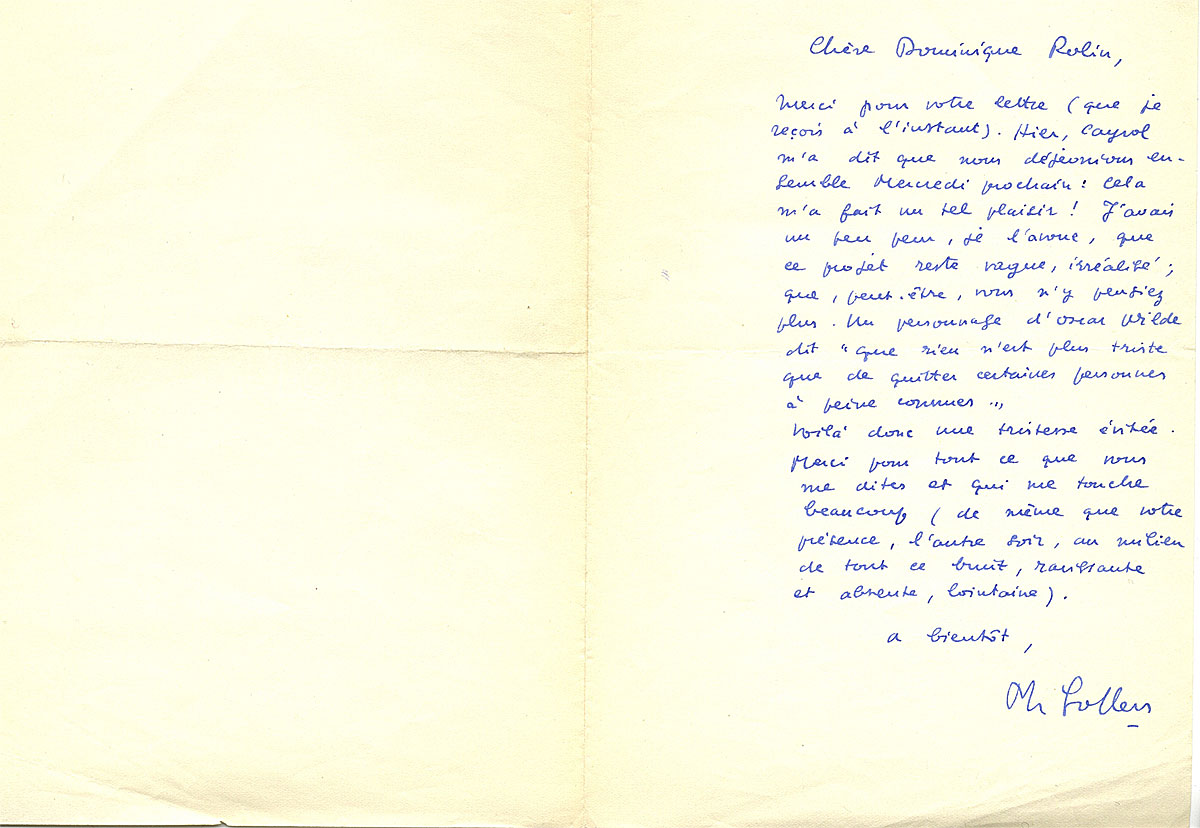 Chère Dominique Rolin,
Merci pour votre lettre (que je
reçois à l'instant). Hier, Cayrol
m'a dit que nous déjeunions en-
semble Mercredi prochain : Cela
m'a fait un tel plaisir ! J'avais
un peu peur, je l'avoue, que
ce projet reste vague, irréalisé ;
que, peut-être, vous n'y pensiez
plus. Un personnage d'Oscar Wilde
dit "que rien n'est plus triste
que de quitter certaines personnes
à peine connues".
Voilà donc une tristesse évitée.
Merci pour tout ce que vous
me dites et qui me touche
beaucoup (de même que votre
présence, l'autre soir, au milieu
de tout ce bruit, ravissante
et absente, lointaine).
a bientôt,
Ph Sollers